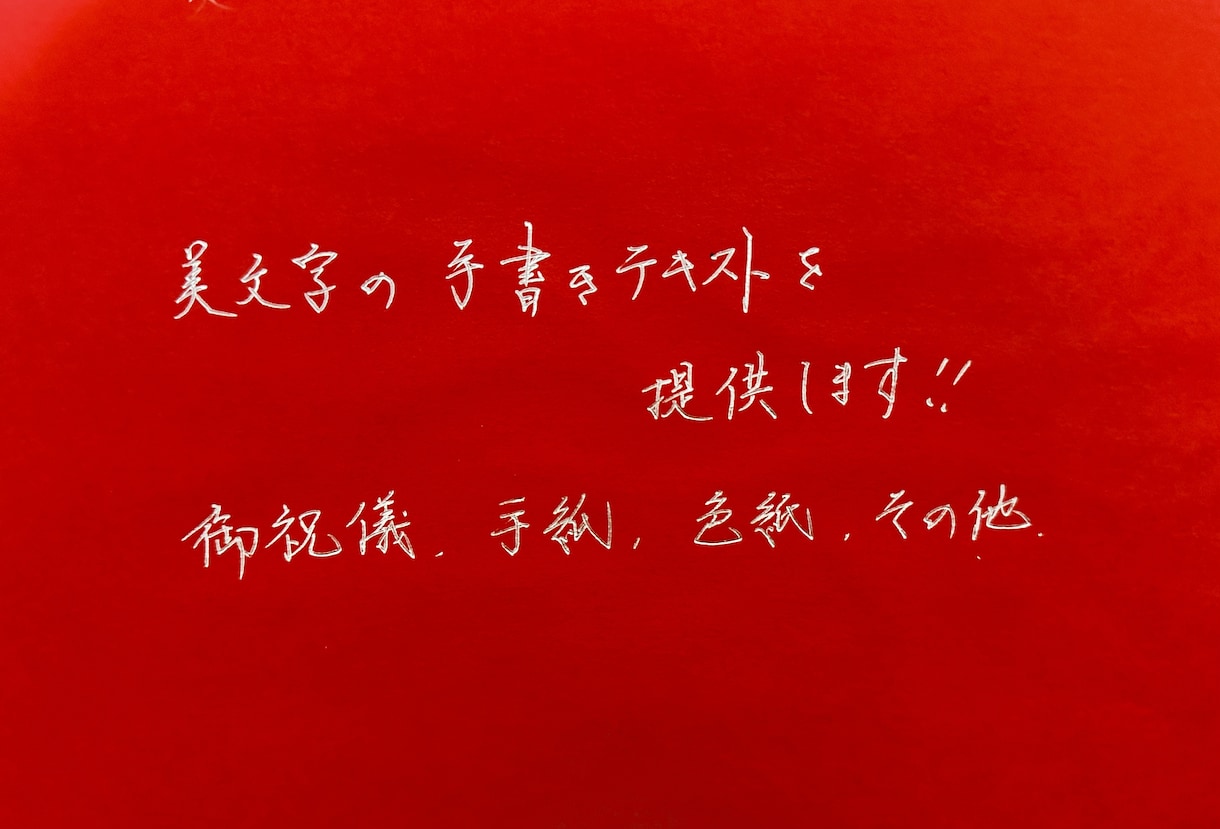 美文字の手書きテキストを
提供します!!
御祝儀、手紙、色紙、その他.